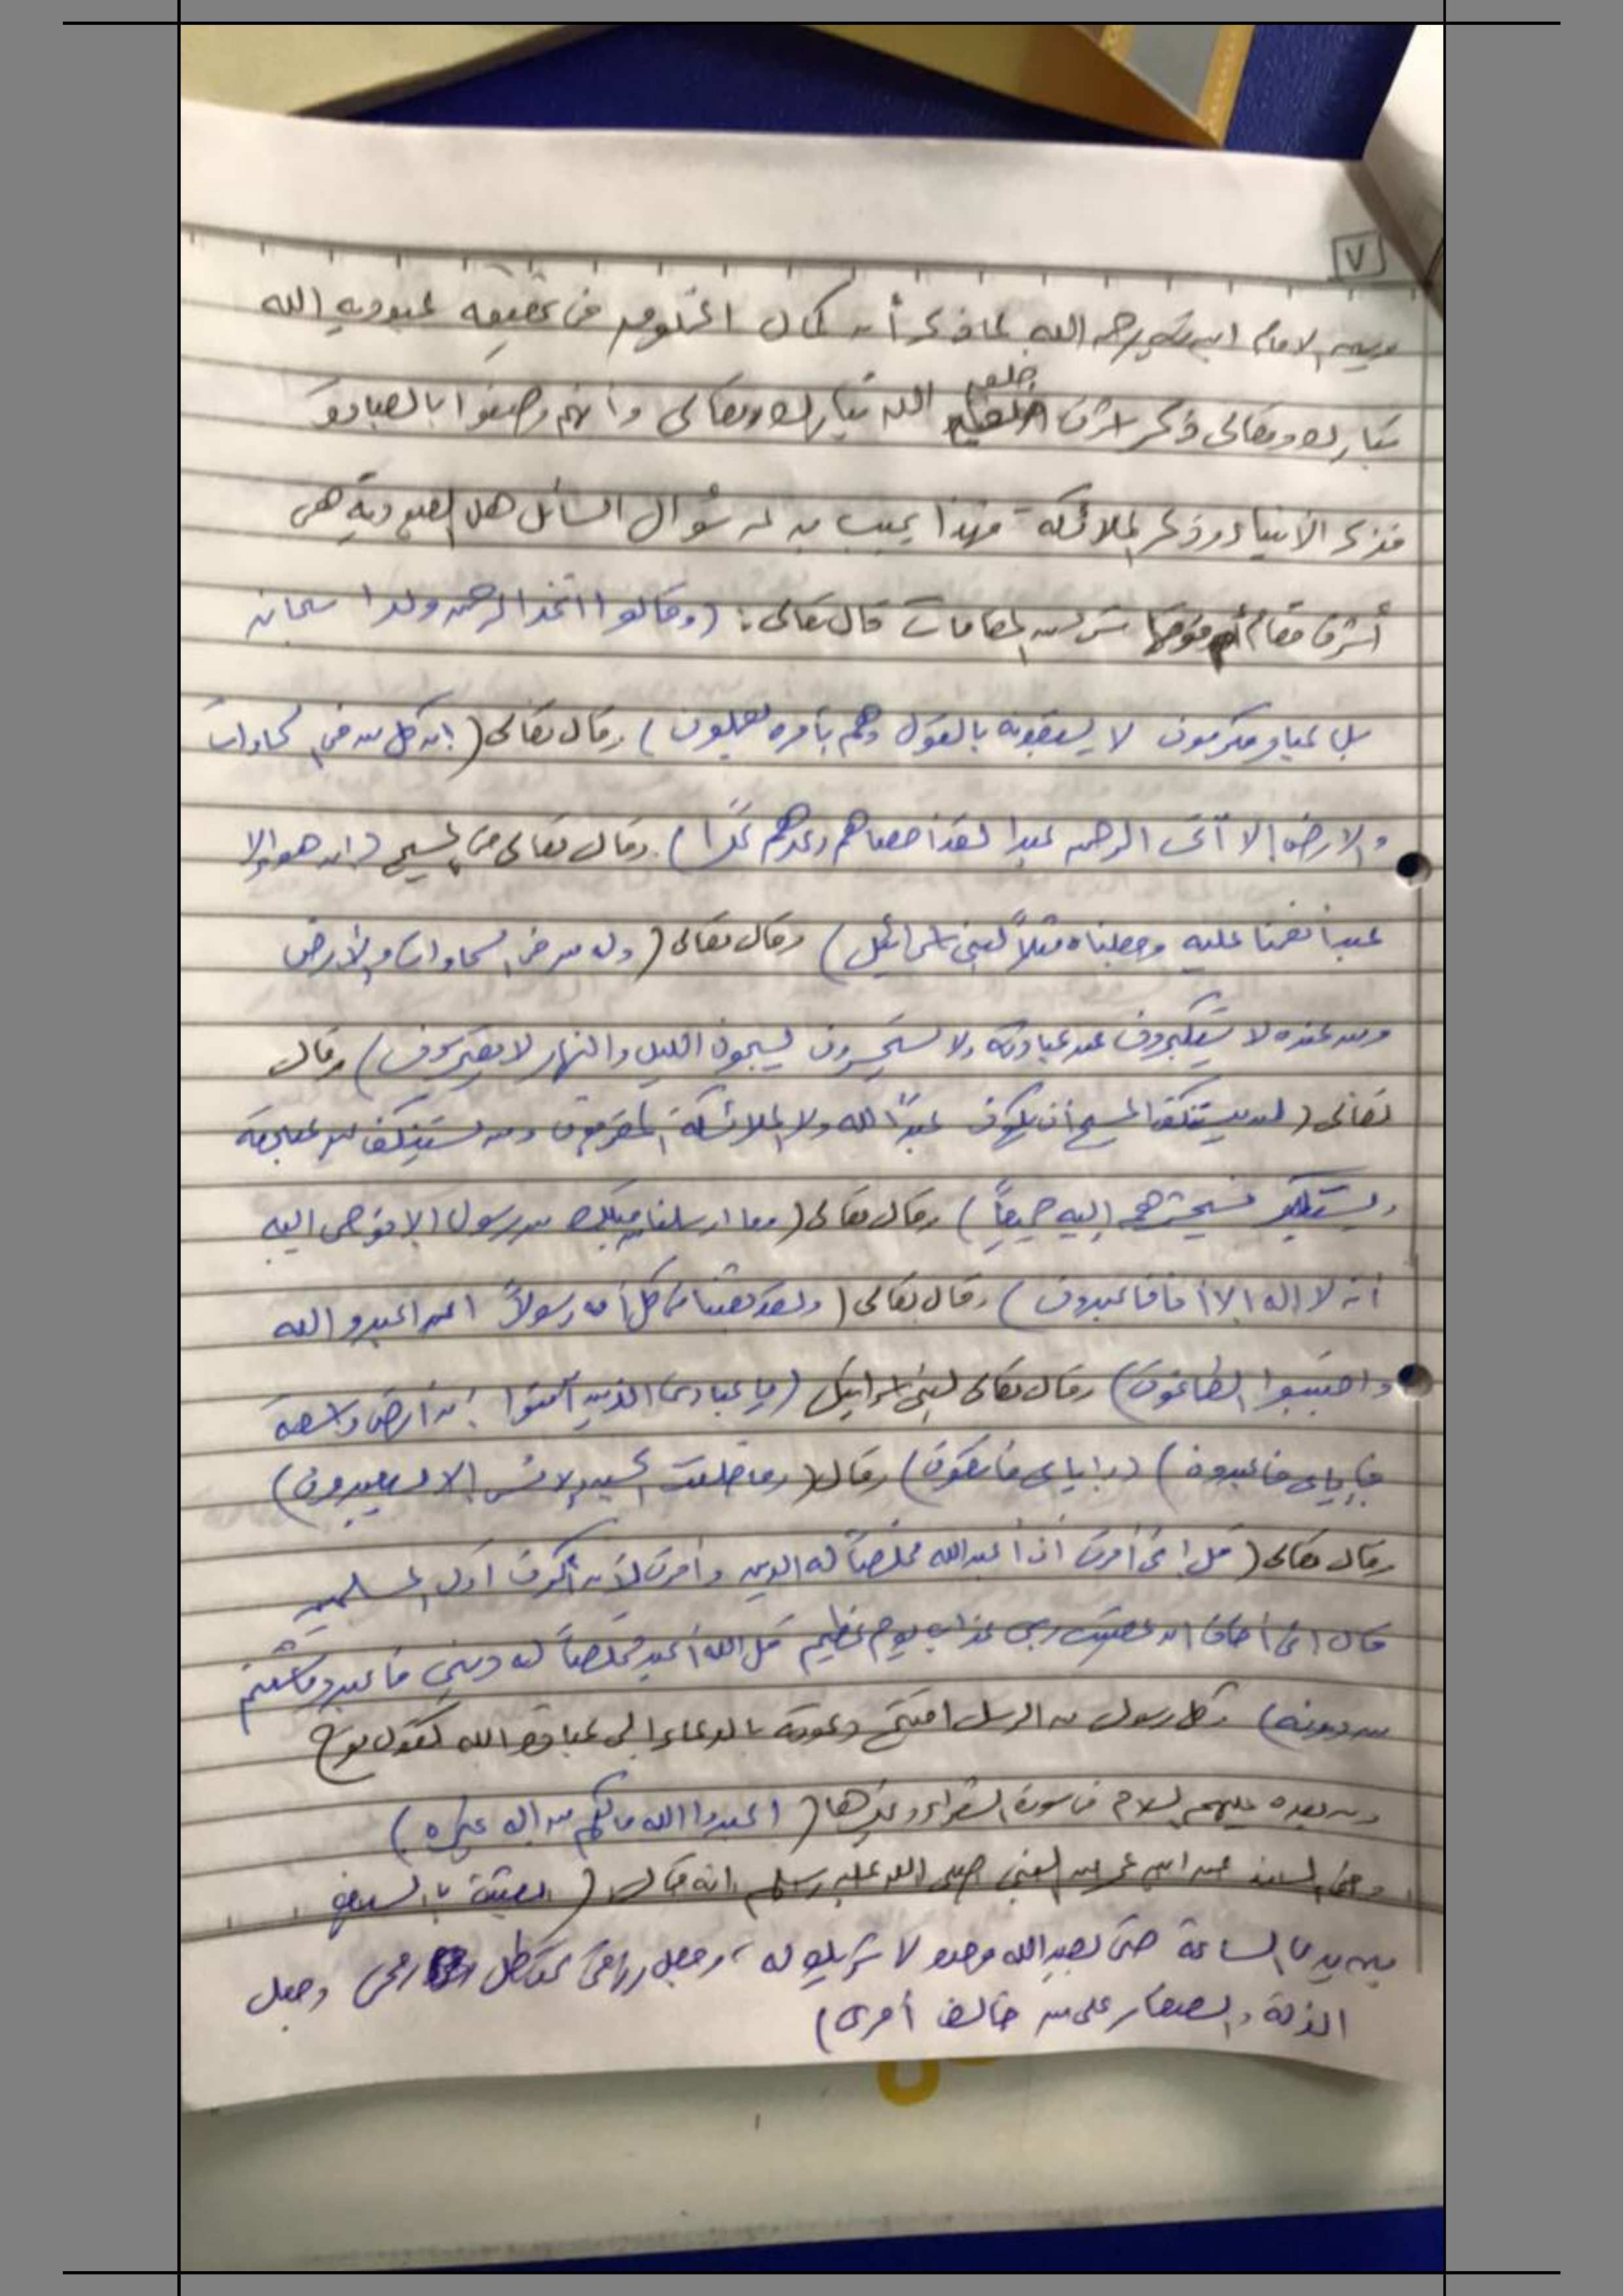 ٧
الامام ابن تيمية رحمه الله لما ذكر أن كمال المخلوق في تحقيقه عبوديه الله
تبارك وتعالى ذكر اشرف خلق الله تبارك وتعالى وأنهم وصفوا بالعبادة
فذكر الأنبياء وذكر الملائكة فهذا يجيب به سؤال السائل هل العبودية هي
أشرف مقام أم فوقها شئ من المقامات قال تعالى: (وقالوا اتخذ الرحمن ولدا سبحانه
بل عباد مكرمون لا يسبقونه بالقول وهم بأمره يعملون) وقال تعالى (إن كل من في السماوات
والارض إلا آتى الرحمن عبدا لقد احصاهم وعدهم عدًا) وقال تعالى في المسيح (ان هو إلا
عبد أنعمنا عليه وجعلناه مثلاً لبني إسرائيل) وقال تعالى (وله من في السماوات والأرض
ومن عنده لا يستكبرون عن عبادته ولا يستحسرون يسبحون الليل والنهار لا يفترون) وقال
تعالى (لن يستنكف المسيح أن يكون عبدًا لله ولا الملائكة المقربون ومن يستنكف عن عبادته
ويستكبر فسيحشرهم إليه جميعاً) وقال تعالى (وما ارسلنا من قبلك من رسول إلا نوحي اليه
أنه لا إله إلا أنا فاعبدون) وقال تعالى (ولقد بعثنا في كل أمة رسولاً ان اعبدوا الله
واجتنبوا الطاغوت) وقال تعالى لبني إسرائيل (يا عبادي الذين آمنوا إن أرضي واسعة
فإياي فاعبدون) (وإياي فاتقون) وقال (وما خلقت الجن والإنس إلا ليعبدون)
وقال تعالى (قل إني أمرت أن أعبد الله مخلصاً له الدين وأمرت لأن أكون أول المسلمين
قال اني أخاف ان عصيت ربي عذاب يوم عظيم قل الله أعبد مخلصاً له ديني فاعبدو ما شئتم
من دونه) وكل رسول من الرسل افتتح دعوته بالدعاء إلى عبادة الله كقول نوح
ومن بعده عليهم السلام في سورة الشعراء وغيرها (اعبدوا الله مالكم من اله غيره)
وفي المسند عن ابن عمر عن النبي صلى الله عليه وسلم انه قال (بعثت بالسيف
بين يدي الساعة حتى يعبد الله وحده لا شريك له، وجعل رزقي تحت ظل رمحي وجعل
الذلة والصغار على من خالف أمري)